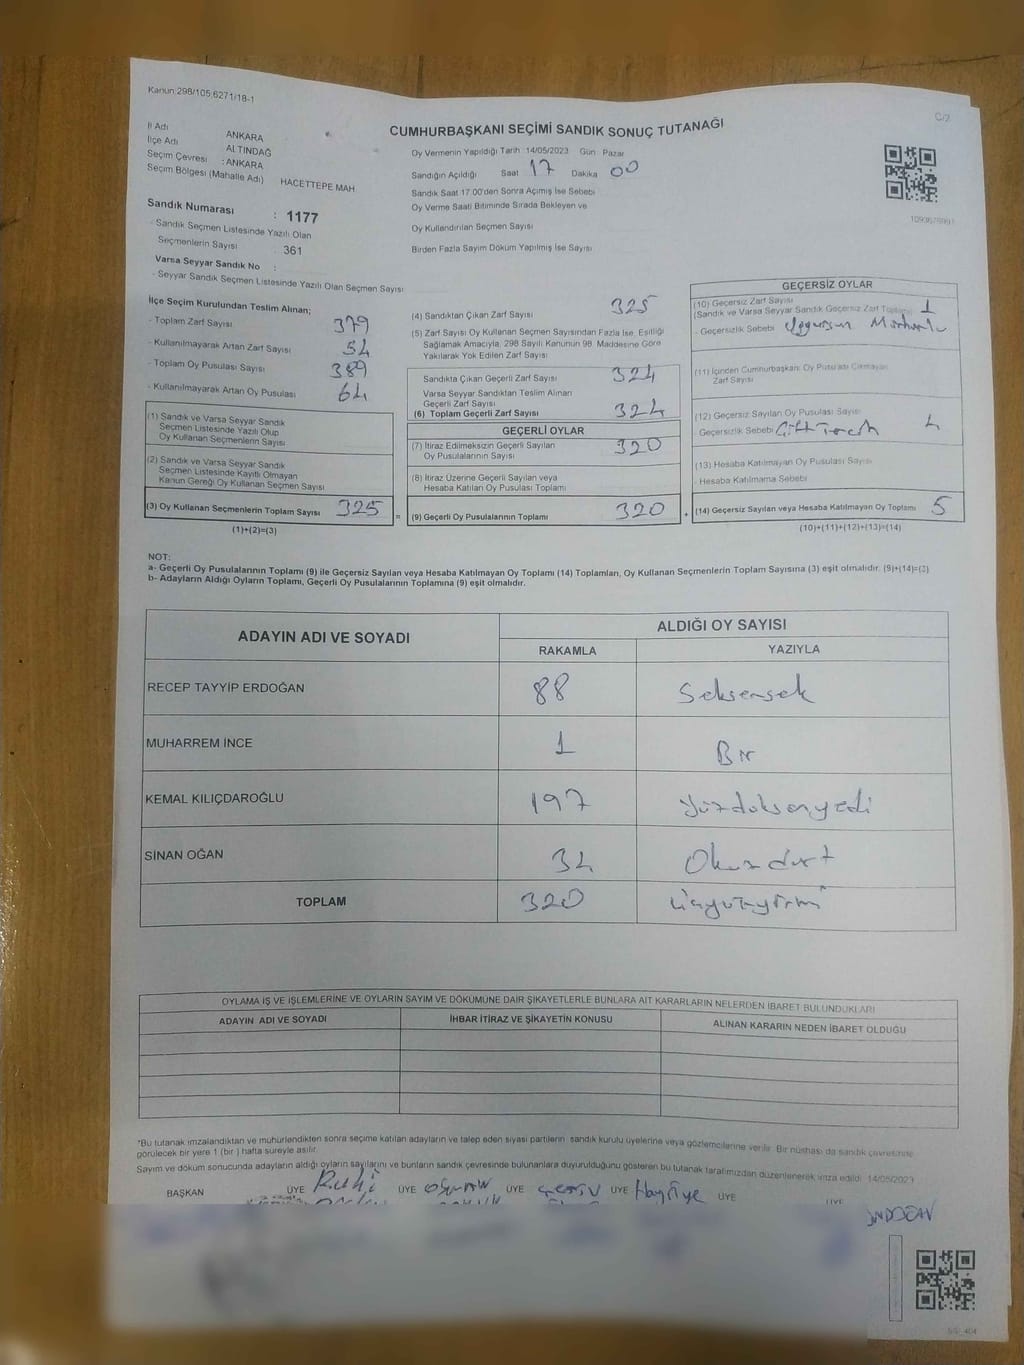 Kanun:298/105,6271/18-1
C/2
CUMHURBAŞKANI SEÇİMİ SANDIK SONUÇ TUTANAĞI
İl Adı ANKARA
İlçe Adı ALTINDAĞ
Seçim Çevresi : ANKARA
Seçim Bölgesi (Mahalle Adı) HACETTEPE MAH
Sandık Numarası : 1177
- Sandık Seçmen Listesinde Yazılı Olan
Seçmenlerin Sayısı 361
Varsa Seyyar Sandık No :
- Seyyar Sandık Seçmen Listesinde Yazılı Olan Seçmen Sayısı
Oy Vermenin Yapıldığı Tarih 14/05/2023 Gün Pazar
Sandığın Açıldığı Saat 17 Dakika 00
Sandık Saat 17.00'den Sonra Açımış İse Sebebi
Oy Verme Saati Bitiminde Sırada Bekleyen ve
Oy Kullandırılan Seçmen Sayısı
Birden Fazla Sayım Döküm Yapılmış İse Sayısı
İlçe Seçim Kurulundan Teslim Alınan;
- Toplam Zarf Sayısı 379
- Kullanılmayarak Artan Zarf Sayısı 54
- Toplam Oy Pusulası Sayısı 389
- Kullanılmayarak Artan Oy Pusulası 64
(1) Sandık ve Varsa Seyyar Sandık
Seçmen Listesinde Yazılı Olup
Oy Kullanan Seçmenlerin Sayısı
(2) Sandık ve Varsa Seyyar Sandık
Seçmen Listesinde Kayıtlı Olmayan
Kanun Gereği Oy Kullanan Seçmen Sayısı
(3) Oy Kullanan Seçmenlerin Toplam Sayısı 325 =
(1)+(2)=(3)
(4) Sandıktan Çıkan Zarf Sayısı 325
(5) Zarf Sayısı Oy Kullanan Seçmen Sayısından Fazla İse, Eşitliği
Sağlamak Amacıyla, 298 Sayılı Kanunun 98. Maddesine Göre
Yakılarak Yok Edilen Zarf Sayısı
Sandıkta Çıkan Geçerli Zarf Sayısı 324
Varsa Seyyar Sandıktan Teslim Alınan
Geçerli Zarf Sayısı
(6) Toplam Geçerli Zarf Sayısı 324
GEÇERLİ OYLAR
(7) İtiraz Edilmeksizin Geçerli Sayılan 320
Oy Pusulalarının Sayısı
(8) İtiraz Üzerine Geçerli Sayılan veya
Hesaba Katılan Oy Pusulası Toplamı
(9) Geçerli Oy Pusulalarının Toplamı 320 +
GEÇERSİZ OYLAR
(10) Geçersiz Zarf Sayısı
(Sandık ve Varsa Seyyar Sandık Geçersiz Zarf Toplamı) 1
- Geçersizlik Sebebi
(11) İçinden Cumhurbaşkanı Oy Pusulası Çıkmayan
Zarf Sayısı
(12) Geçersiz Sayılan Oy Pusulası Sayısı
- Geçersizlik Sebebi 4
(13) Hesaba Katılmayan Oy Pusulası Sayısı
- Hesaba Katılmama Sebebi
(14) Geçersiz Sayılan veya Hesaba Katılmayan Oy Toplamı 5
(10)+(11)+(12)+(13)=(14)
NOT:
a- Geçerli Oy Pusulalarının Toplamı (9) ile Geçersiz Sayılan veya Hesaba Katılmayan Oy Toplamı (14) Toplamları, Oy Kullanan Seçmenlerin Toplam Sayısına (3) eşit olmalıdır. (9)+(14)=(3)
b- Adayların Aldığı Oyların Toplamı, Geçerli Oy Pusulalarının Toplamına (9) eşit olmalıdır.
ADAYIN ADI VE SOYADI ALDIĞI OY SAYISI
RAKAMLA YAZIYLA
RECEP TAYYİP ERDOĞAN 88 Seksensek
MUHARREM İNCE 1 Bir
KEMAL KILIÇDAROĞLU 197 Yüzdoksanyedi
SİNAN OĞAN 34 Otuzdört
TOPLAM 320 Üçyüzyirmi
OYLAMA İŞ VE İŞLEMLERİNE VE OYLARIN SAYIM VE DÖKÜMÜNE DAİR ŞİKAYETLERLE BUNLARA AİT KARARLARIN NELERDEN İBARET BULUNDUKLARI
ADAYIN ADI VE SOYADI İHBAR İTİRAZ VE ŞİKAYETİN KONUSU ALINAN KARARIN NEDEN İBARET OLDUĞU
*Bu tutanak imzalandıktan ve mühürlendikten sonra seçime katılan adayların ve talep eden siyasi partilerin sandık kurulu üyelerine veya gözlemcilerine verilir. Bir nüshası da sandık çevresinde
görülecek bir yere 1 (bir ) hafta süreyle asılır.
Sayım ve döküm sonucunda adayların aldığı oyların sayılarını ve bunların sandık çevresinde bulunanlara duyurulduğunu gösteren bu tutanak tarafımızdan düzenlenerek imza edildi. 14/05/2023
BAŞKAN ÜYE ÜYE OSMAN ÜYE ÜYE Hayriye ÜYE ÜYE